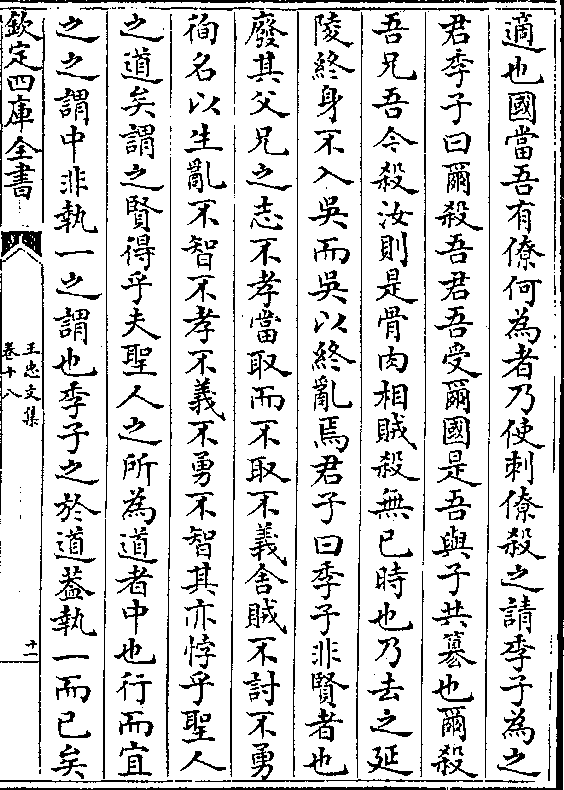 適也國當吾有僚何為者乃使刺僚殺之請季子為之
君季子曰爾殺吾君吾受爾國是吾與子共簒也爾殺
吾兄吾今殺汝則是骨肉相賊殺無已時也乃去之延
陵終身不入吳而吳以終亂焉君子曰季子非賢者也
廢其父兄之志不孝當取而不取不義舍賊不討不勇
徇名以生亂不智不孝不義不勇不智其亦悖乎聖人
之道矣謂之賢得乎夫聖人之所為道者中也行而宜
之之謂中非執一之謂也季子之於道葢執一而已矣
欽定四庫全書
王忠文集
卷十八
十二